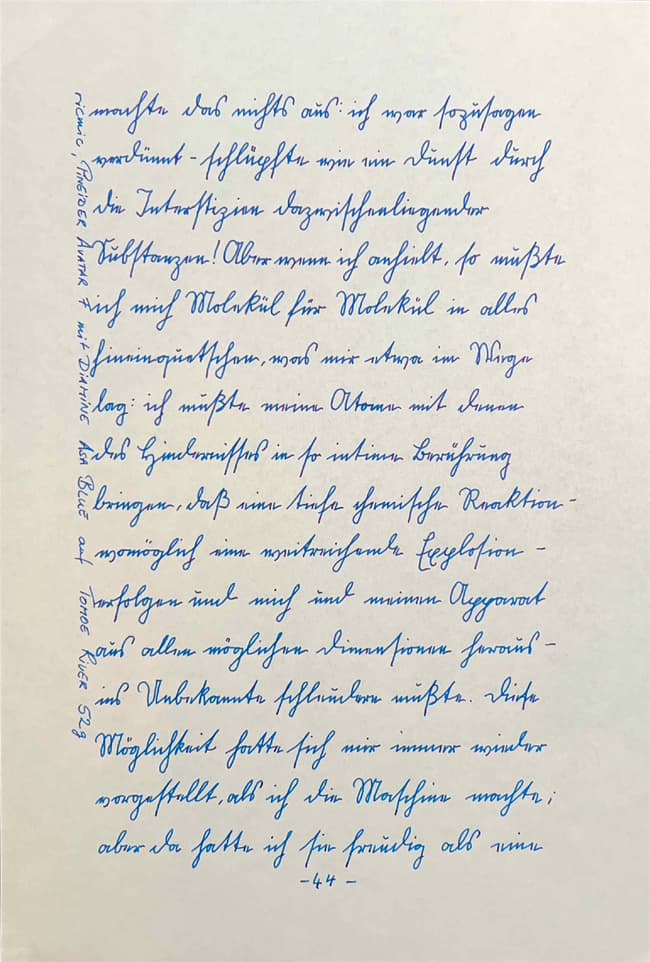 machte das nichts aus: ich war sozusagen
verdünnt - schlüpfte wie ein Dunst durch
die Interstizien dazwischenliegender
Substanzen! Aber wenn ich anhielt, so mußte
ich mich Molekül für Molekül in alles
hineinquetschen, was mir etwa im Wege
lag: ich mußte meine Atome mit denen
des Hindernisses in so intime Berührung
bringen, daß eine tiefe chemische Reaktion -
womöglich eine weitreichende Explosion -
erfolgen und mich und meinen Apparat
aus allen möglichen Dimensionen heraus -
ins Unbekannte schleudern mußte. Diese
Möglichkeit hatte sich mir immer wieder
vorgestellt, als ich die Maschine machte;
aber da hatte ich sie freudig als eine
- 44 -
ricmic, Pineider Avatar F mit Diamine Asa Blue auf Tomoe River 52g